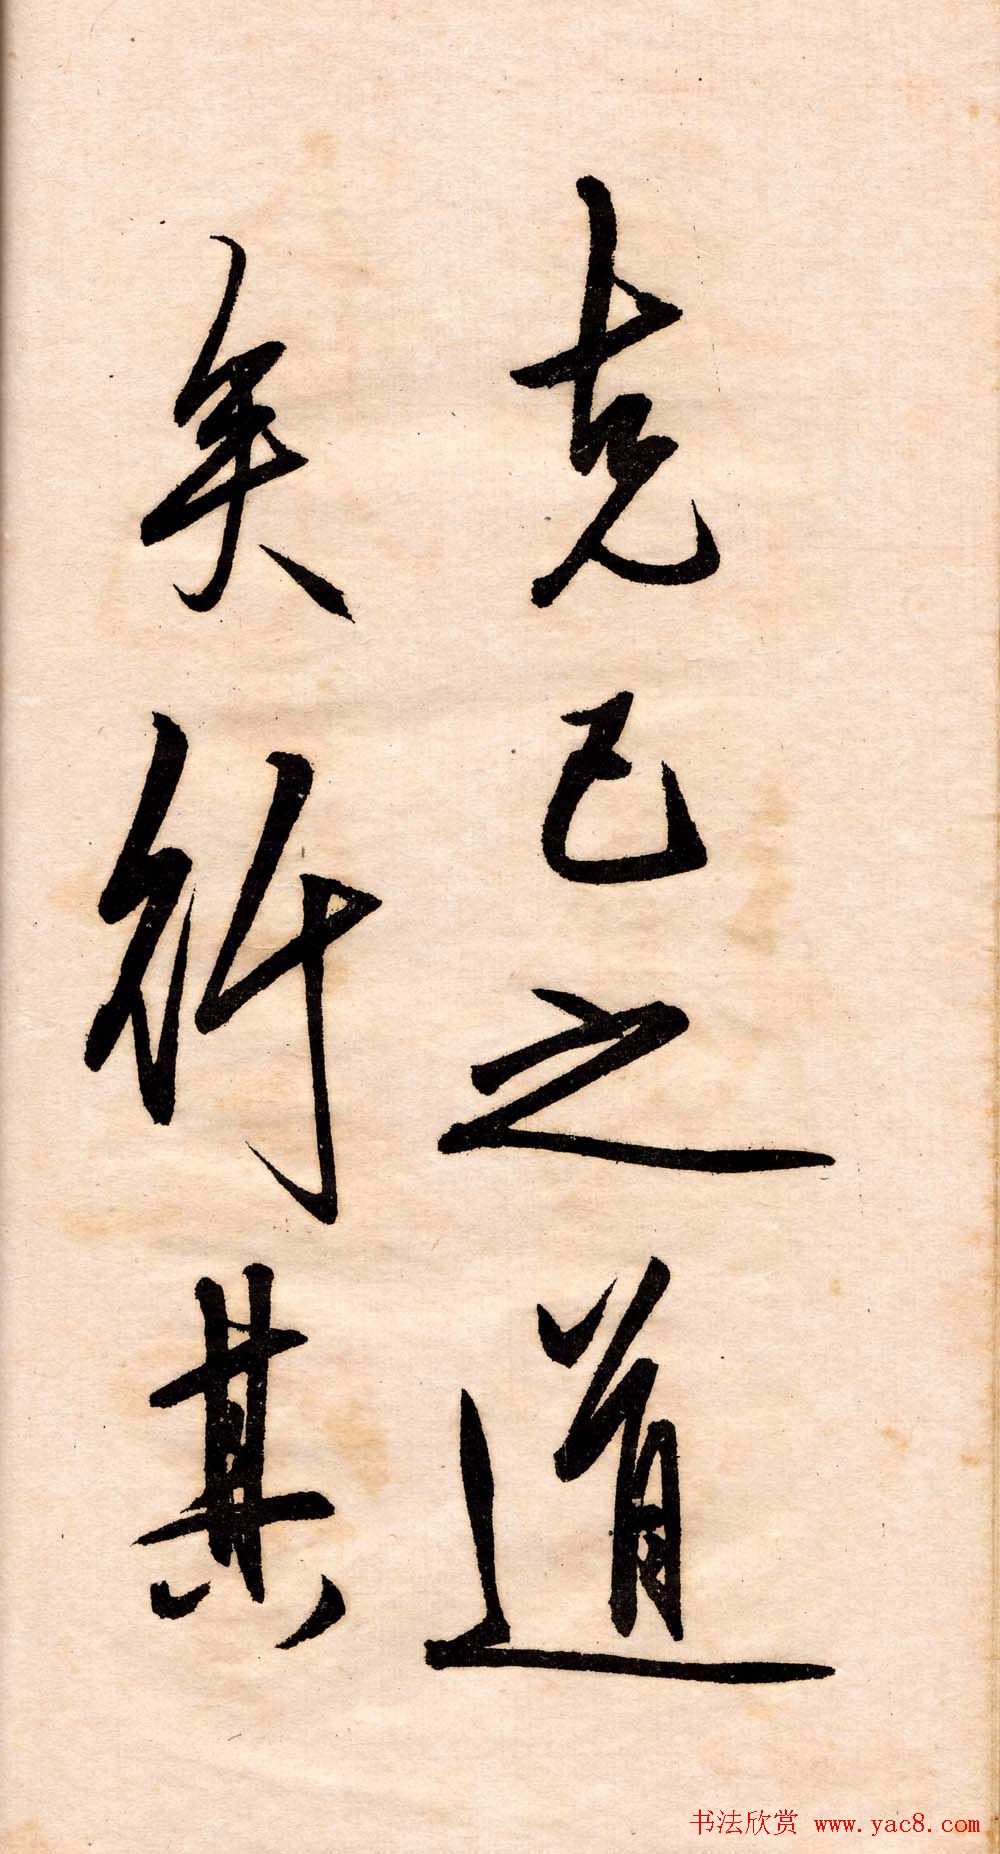 克己之道
矣行其
书法欣赏 www.yac8.com